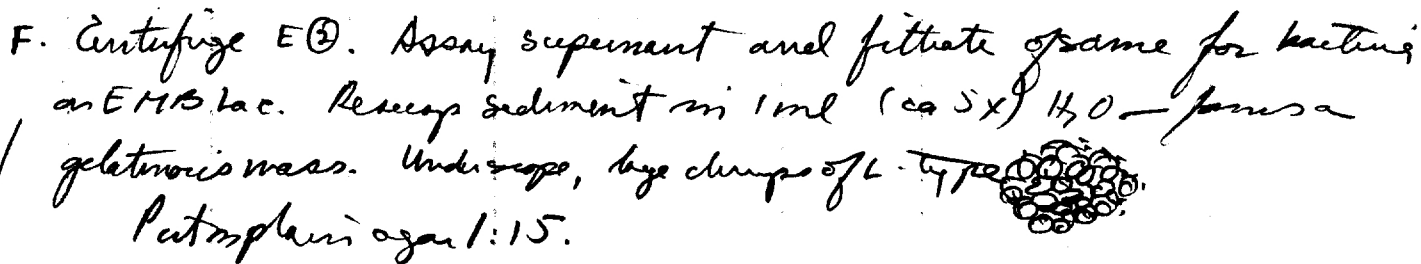 F. Centrifuge E②. Assay supernant and filtrate of same for bacteria
on EMB Lac. Resusp sediment in 1 ml (ca 5x) H2O — forms a
gelatinous mass. Under scope, large clumps of L-type
Put on plain agar 1:15.